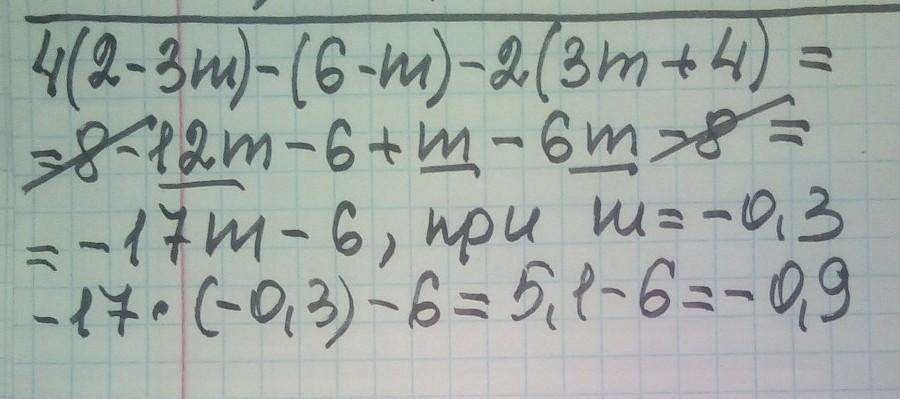 4(2-3m)-(6-m)-2(3m+4)=
=8-12m-6+m-6m-8=
=-17m-6, при m=-0,3
-17·(-0,3)-6=5,1-6=-0,9